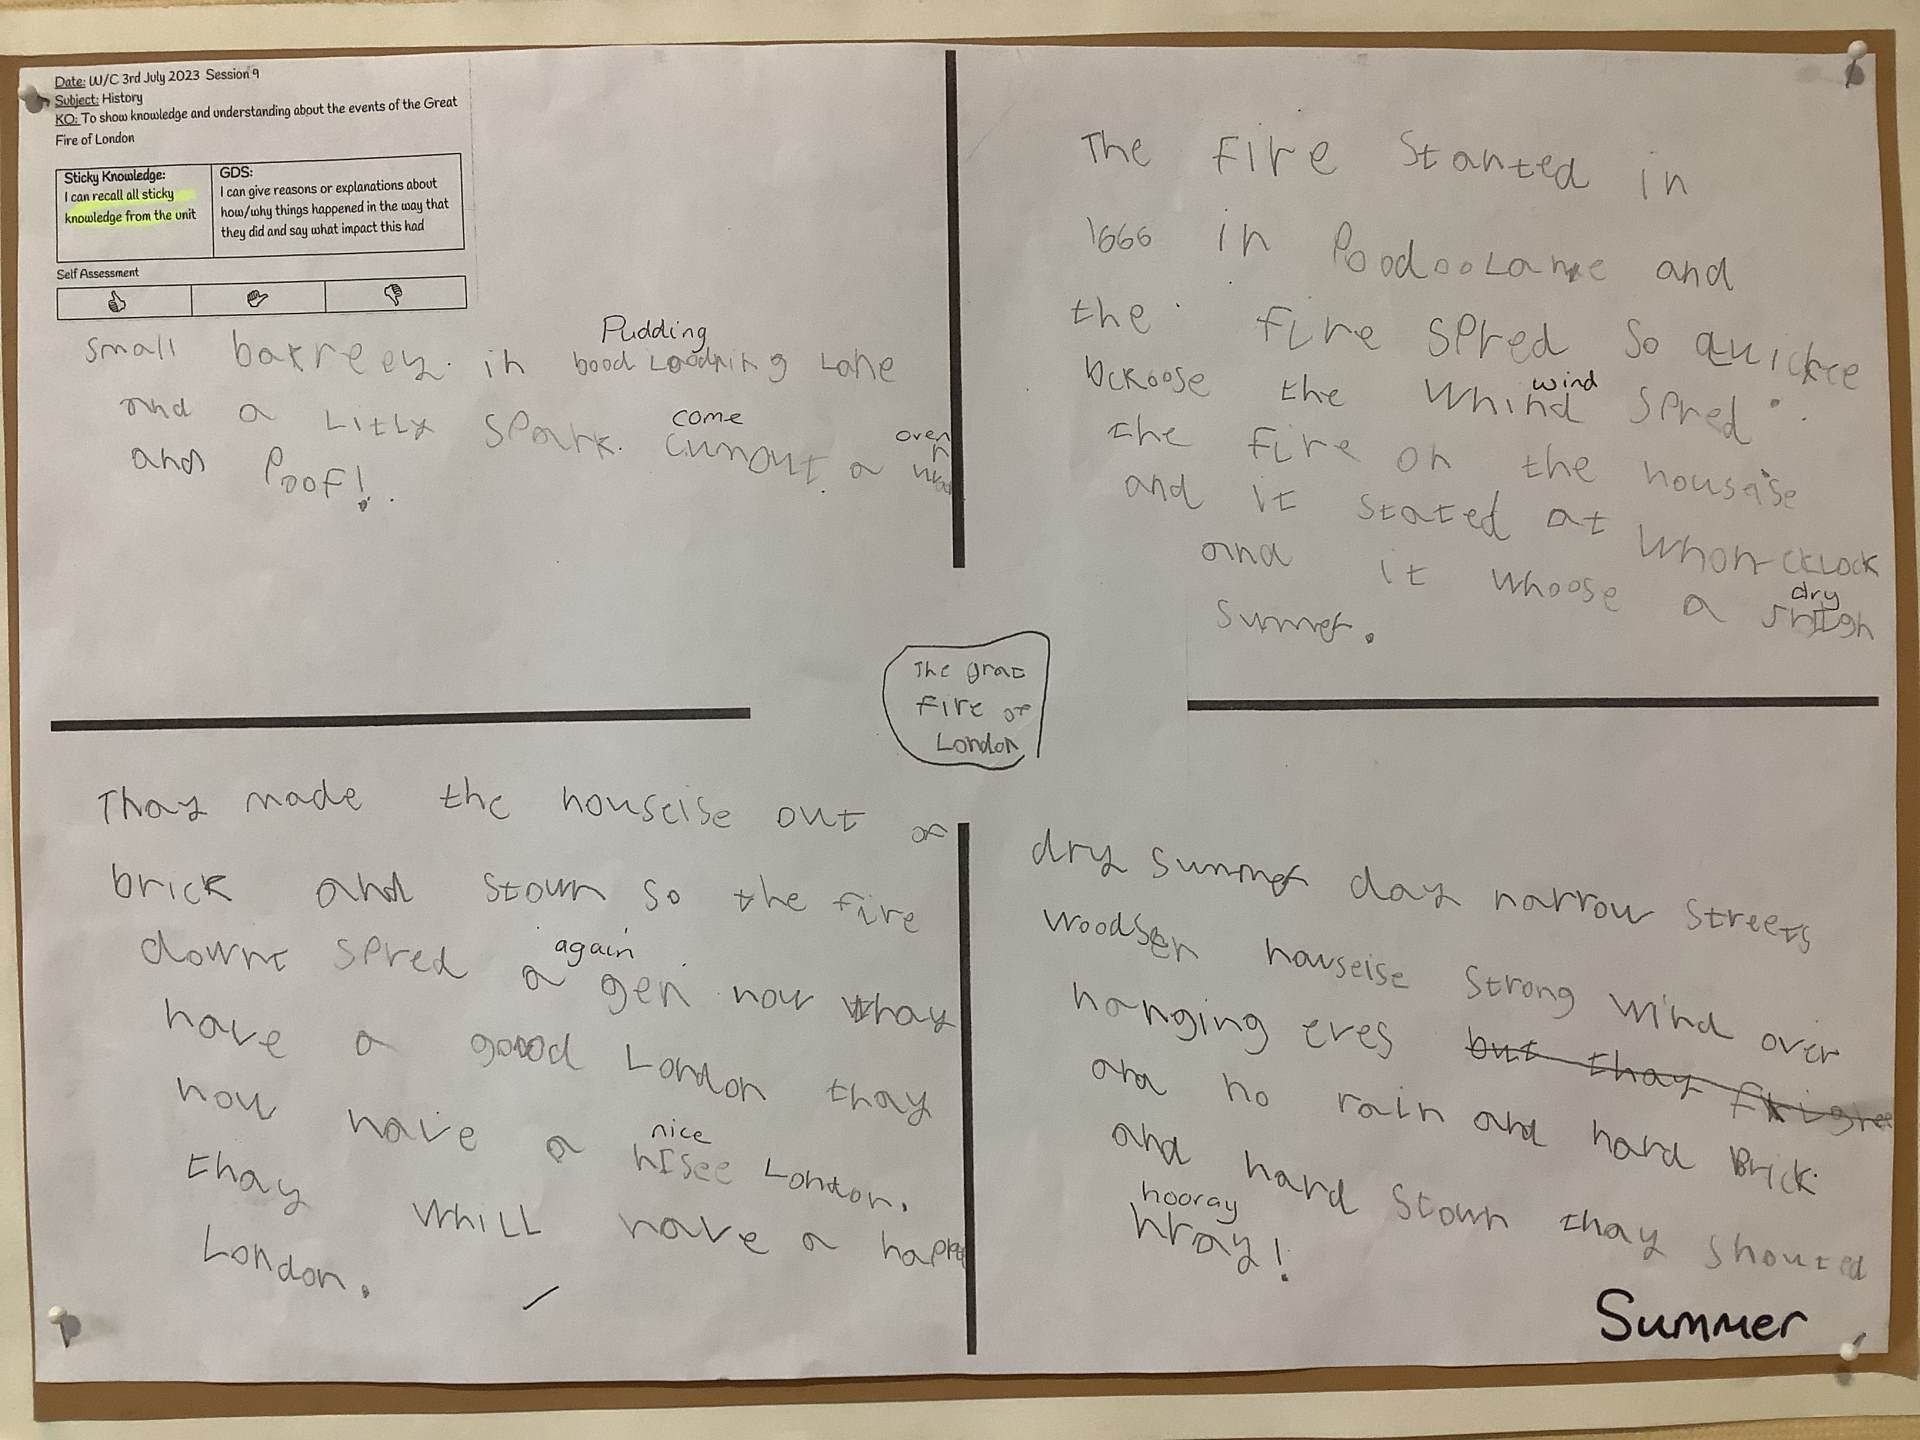 Date: W/C 3rd July 2023 Session 9
Subject: History
KO: To show knowledge and understanding about the events of the Great
Fire of London
Sticky Knowledge:
I can recall all sticky
knowledge from the unit
GDS:
I can give reasons or explanations about
how/why things happened in the way that
they did and say what impact this had
Self Assessment
Pudding
small bakreey. in bood Loodning Lane
come
oven
and a Litly spark. cumout a
and Poof!.
The fire Stanted in
1666 in PoodooLane and
the fire spred so quickee
wind
bckoose the whind spred
the fire on the housise
and it stated at whon-cklock
dry
and it whoose a
summer.
The grat
fire of
London
Thay made the houseise out of
brick and stown so the fire
again
downt spred a gen now thay
have a good London thay
nice
now have a nIsee London.
thay whill have a happ
London.
dry summer day narrow streets
woodsen houseise strong wind over
hanging eves but thay
and no rain and hard Brick.
and hard stown thay shouted
hooray
hray!
Summer